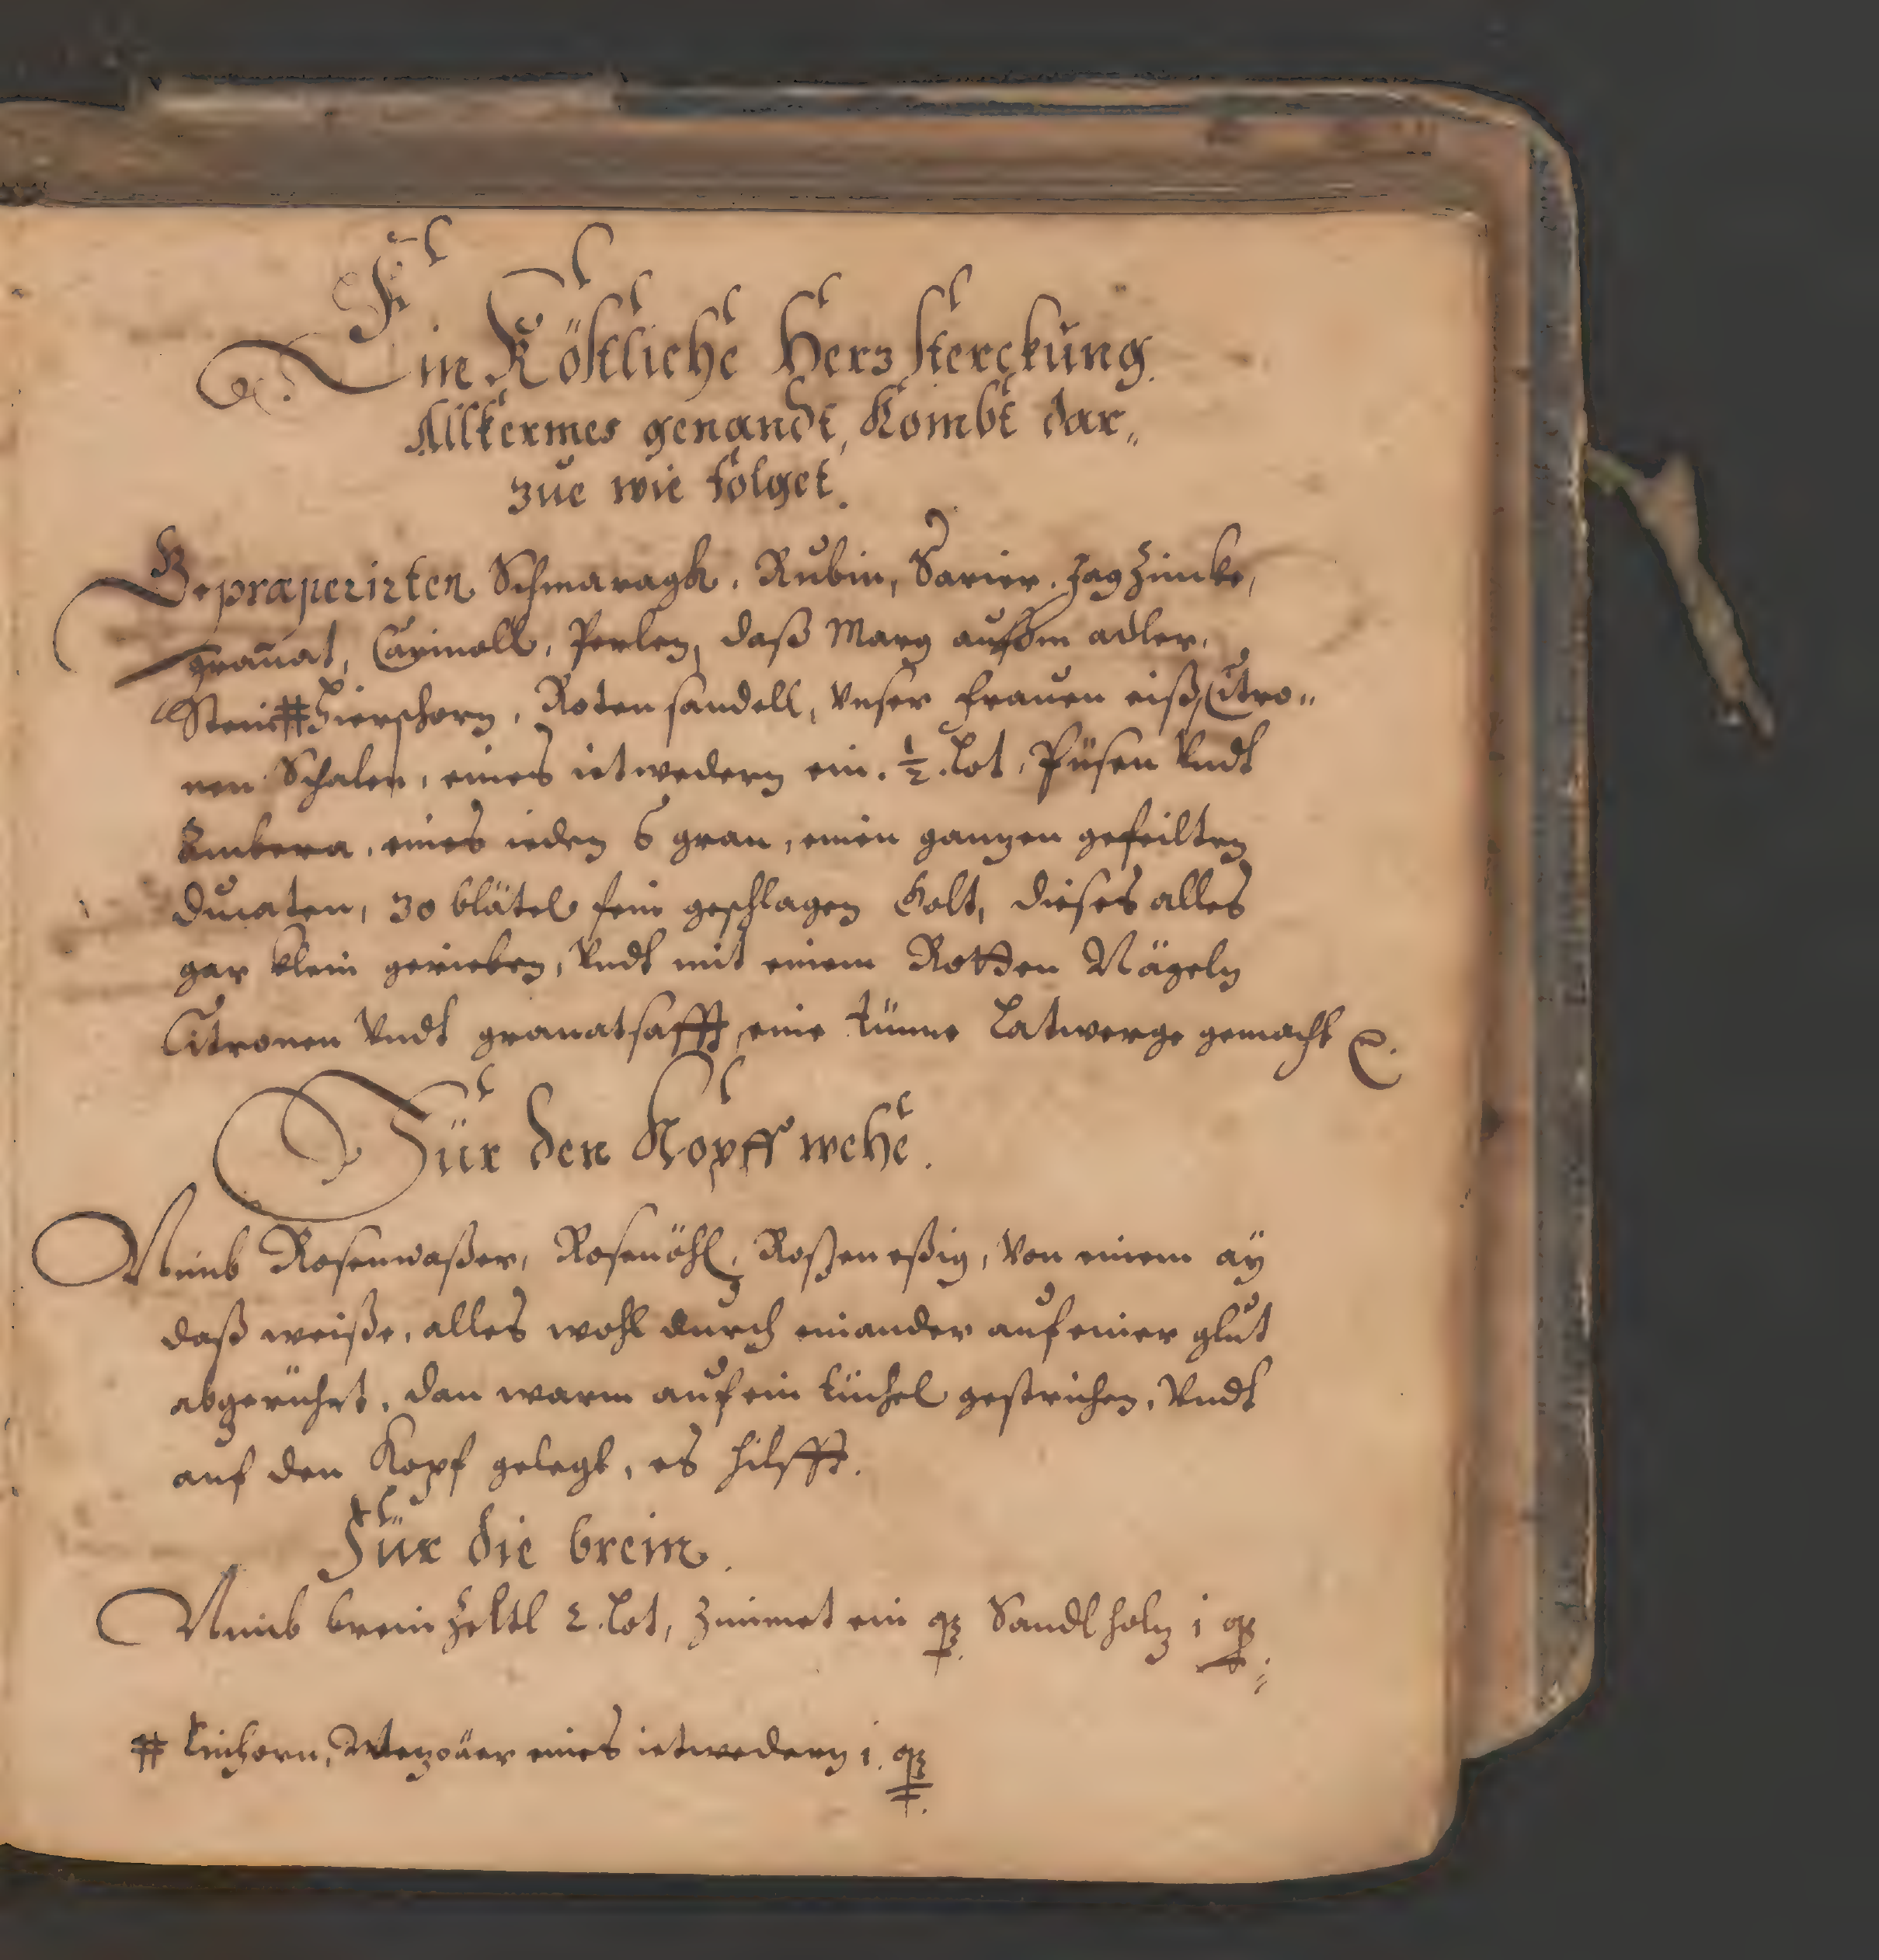 Ein Köstliche Herz sterckung
Allkermes genandt, Kombt dar„
zue wie folget.
Gepræperirten Schmaragk. Rubin, Savier. Jagzincke,
granat, Carinoll, Perlen, daß Marg aussem adler.
Stein # Hierschorn, Roten sandell, Vnser frauen eiß, Citro„
nen Schalen, eines ietwedern ein. ½. Lot, Püsen Vndt
Ambera, eines ieden 6 gran, einen ganzen gefeilten
Ducaten, 30 blätel fein geschlagen Golt, dieses alles
gar klein gerieben, Vndt mit einem Rotten Nägeln
Citronen Vndt granatsafft, eine tünne Latwerge gemacht
Für den Kopff wehe.
Nimb Rosenwaßer, Rosenöhl, Roßen eßig, Von einem aÿ
daß weiße, alles wohl durch einander auf einer glut
abgerührt, dan warm auf ein tüchel gestrichen, Vndt
auf den Kopf gelegt, es hilfft.
Für die brein.
Nimb brein Zeltl 2. Lot, Zimmet ein q Sandl holz 1 q
# Einhorn, eines ietwedern 1. q